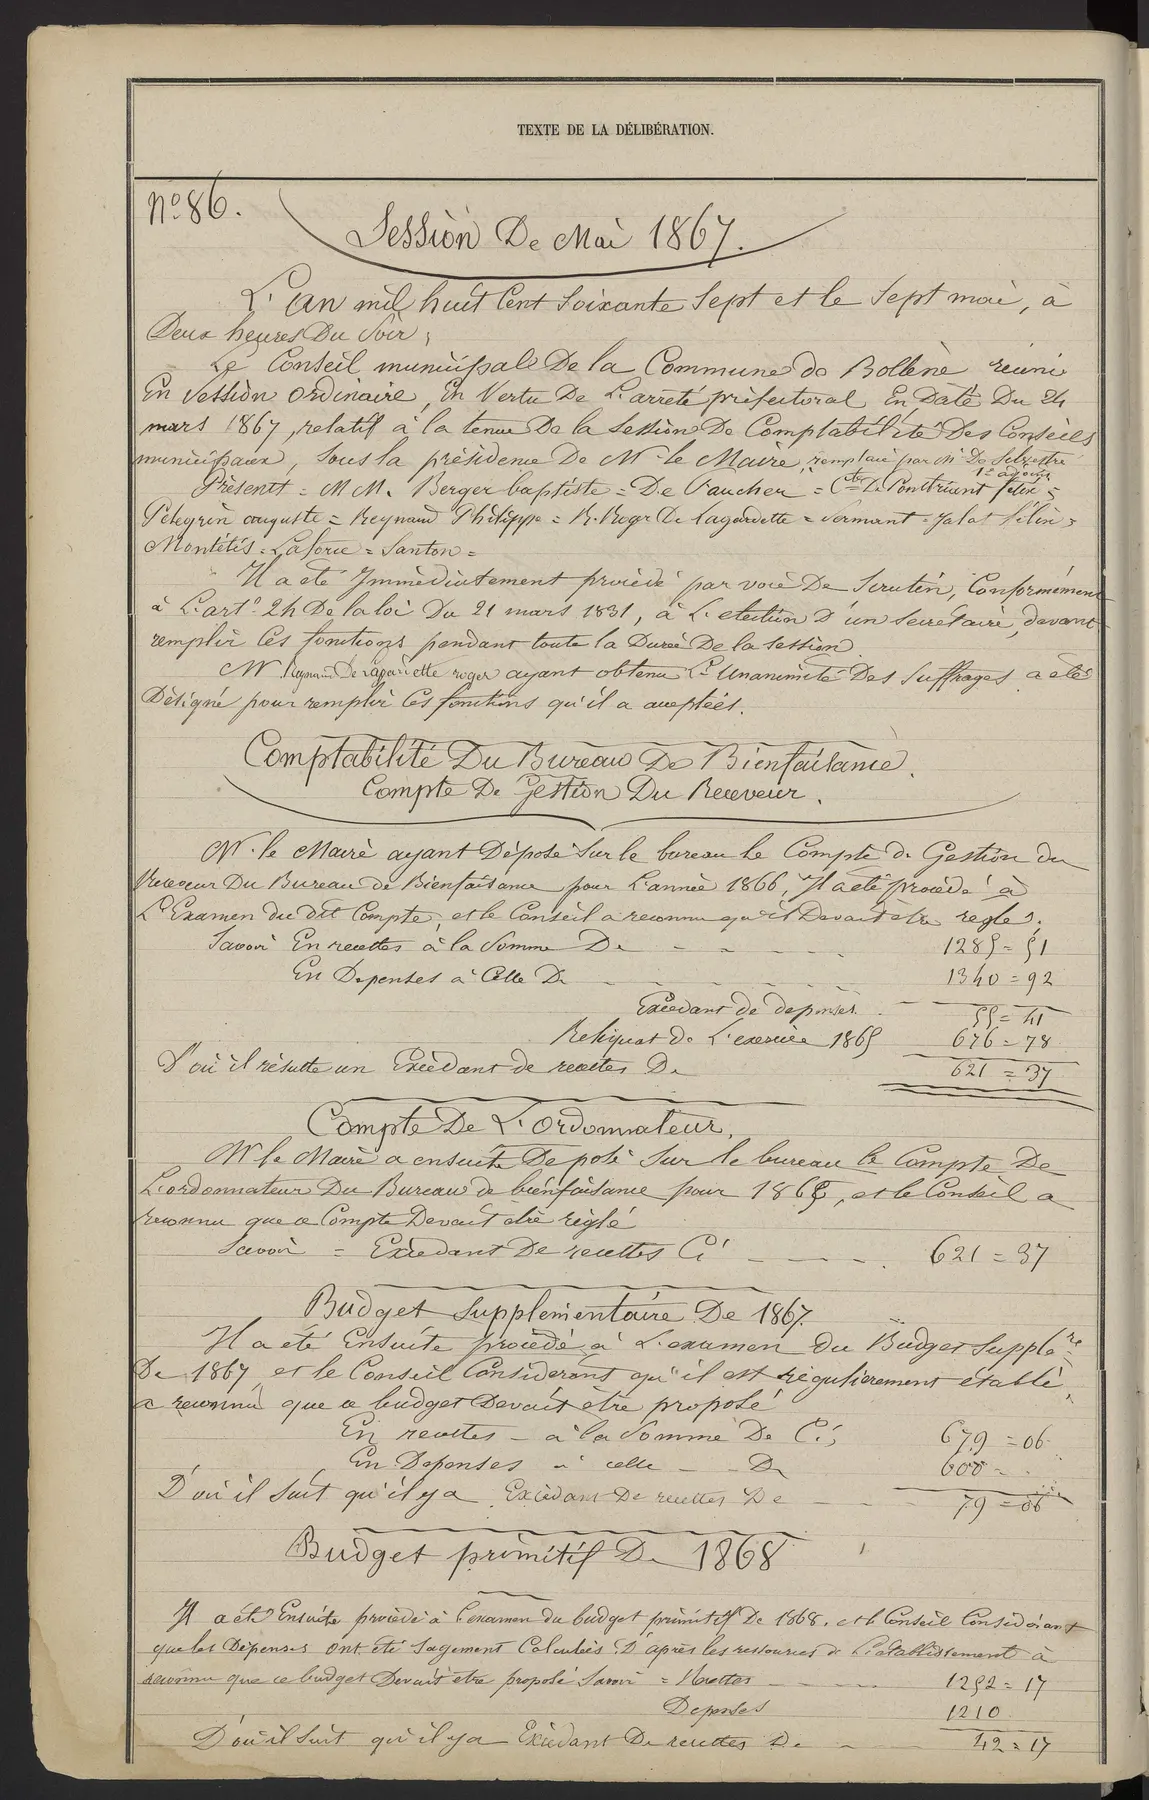 TEXTE DE LA DÉLIBÉRATION.
N.º 86.
Session De Mai 1867.
L'an mil huit Cent soixante sept et le sept mai, à
Deux heures Du Soir,
Le Conseil municipal De la Commune de Bollène réuni
En Session ordinaire, En Vertu De L'arrêté préfectoral En Date Du 24
mars 1867, relatif à la tenue De la Session De Comptabilité Des Conseils
municipaux, Sous la présidence De Mr le Maire, remplacé par Mr De Selvestre
1er adjoint
Présents = MM. Berger baptiste = De Vaucher = Cte De Pontbriant félix =
Pelegrin auguste = Reynaud Philippe = R. Roger De Lagardette = Sermant = Jalat félix =
Montétis = Laforce = Santon =
Il a été Immédiatement procédé par voie De Scrutin, Conformément
à L'art. 24 De la loi Du 21 mars 1831, à L'election D'un Secrétaire, devant
remplir les fonctions pendant toute la Durée De la session
Mr Reynaud De lagardette roger ayant obtenu L'Unanimité Des Suffrages a été
Désigné pour remplir les fonctions qu'il a acceptées.
Comptabilité Du Bureau De Bienfaisance.
Compte De Gestion Du Receveur.
Mr le Maire ayant Déposé sur le bureau le Compte de Gestion du
Receveur Du Bureau de Bienfaisance pour L'année 1866, Il a été procédé à
L'Examen du dit Compte, et le Conseil a reconnu qu'il Devait être reglé.
Savoir En recettes à la Somme De 1285 = 51
En Depenses à Celle De 1340 = 92
Excédant de depenses 55 = 41
Reliquat de L'exercice 1865 676 = 78
D'où il résulte un Excédant de recettes De 621 = 37
Compte De L'Ordonnateur.
Mr le Maire a ensuite Déposé Sur le bureau le Compte De
L'ordonnateur Du Bureau de bienfaisance pour 1865, et le Conseil a
reconnu que ce Compte Devait être réglé
Savoir = Excédant De recettes Ci 621 = 37
Budget supplémentaire De 1867.
Il a été Ensuite procédé à L'examen du Budget Supplére
De 1867, et le Conseil Considérant qu'il est régulièrement établi,
a reconnu que ce budget Devait être proposé
En recettes – à la Somme De Ci 679 = 06
En Depenses – à celle – De 600 =
D'où il suit qu'il y a Excédant De recettes De 79 = 06
Budget primitif De 1868
Il a été Ensuite procédé à l'examen du budget primitif De 1868, et le Conseil Considérant
que les Dépenses ont été sagement Calculées D'après les ressources de L'établissement a
reconnu que ce budget Devait être proposé Savoir = Recettes 1252 = 17
Depenses 1210
D'où il suit qu'il y a Excédant De recettes De 42 = 17